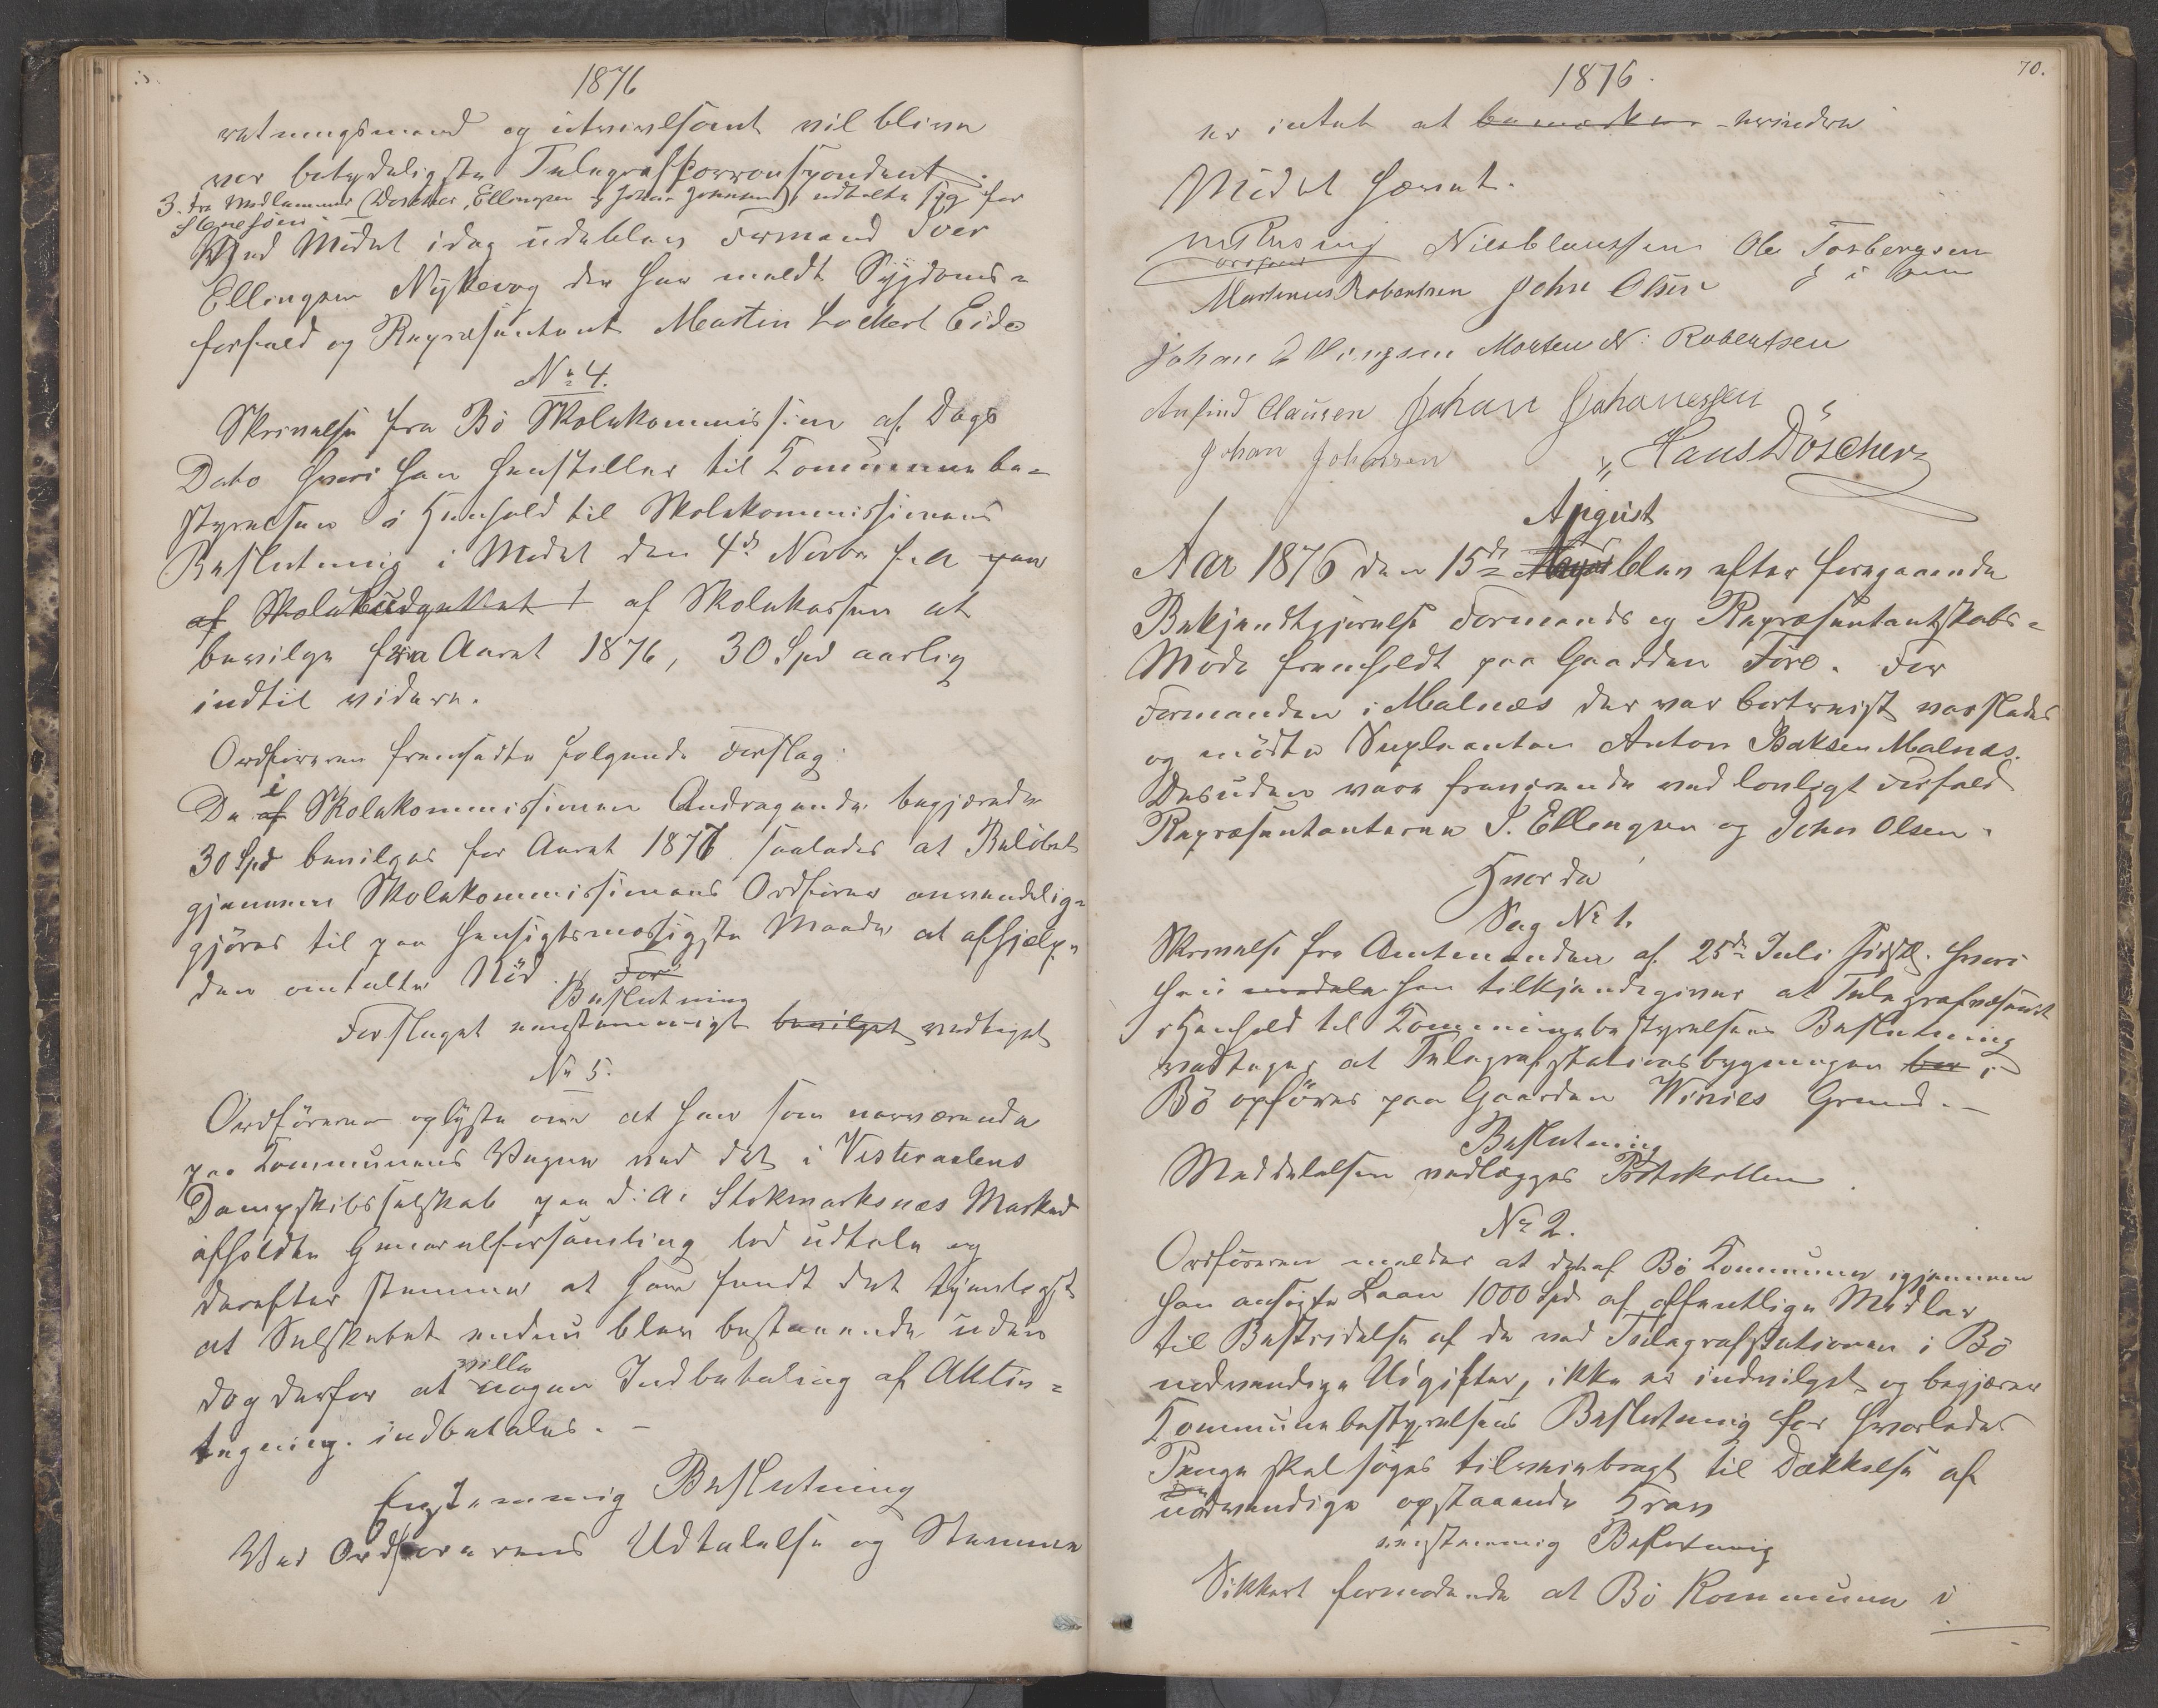 1876
retningsmand og utvivlsomt vil blive
vor betydeligste Telegrafkorrespondent.
3. tre Medlemmer (Døscher, Ellingsen og Johan Johnsen) udtalte sig for
Steinesjøen
Ved Mødet idag udeblev Formand Iver
Ellingsen Nykevog der har meldt Sygdoms-
forfald og Repræsentant Martin Lockert Eide
No 4.
Skrivelse fra Bö Skolekommission af Dags
Dato hvori han henstiller til Kommunebe-
styrelsen i Henhold til Skolekommissionens
Beslutning i Mødet den 4de Novbr f.A paa
af Skolebudgettet † af Skolekassen at
bevilge fra Aaret 1876, 30 Spd aarlig
indtil videre.
Ordføreren fremsatte følgende Forslag:
De af i Skolekommissionen Andragende begjærede
30 Spd bevilges for Aaret 1876 saaledes at Beløbet
gjennem Skolekommissionens Ordfører anvendelig-
gjöres til paa hensigtsmæssigste Maade at afhjælpe
den omtalte Nød. For
Beslutning
Forslaget eenstemmigt bevilget vedtaget
No 5.
Ordföreren oplyste om at han som nærværende
paa Kommunens Vegne ved det i Vesteraalens
Dampskibsselskab paa d: A: Stokmarksnæs Marked
afholdte Generalforsamling lod udtale og
derefter stemme at han fandt det tjenligst
at Selskabet endnu blev bestaaende uden
dog derfor at ville nogen Indbetaling af Aktie-
tegning. indbetales. -
Enstemmig Beslutning
Ved Ordførerens Udtalelse og Stemme
1876. 70.
er intet at bemærke erindre
Mødet hævet.
Rusing Nils Claussen Ole Torbergsen
Ordfører
Martinus Robertsen John Olsen
Johan Ellingsen Morten N. Robertsen
Anfind Clausen Johan Johanessen
Johan Johnsen Hans Döscher
August
Aar 1876 den 15de blev efter foregaaende
Bekjendtgjørelse Formands og Repræsentantskabs-
Møde fremholdt paa Gaarden Føre. For
Formanden i Malnæs der var bortreist varsledes
og mödte Supleanten Anton Isaksen Malnæs.
Desuden vare fraværende ved lovligt Forfald
Repræsentanterne J. Ellingsen og John Olsen.
Hvor da
Sag No 1.
Skrivelse fra Amtmanden af 25de Juli sidstl. hvori
han meddele han tilkjendegiver at Telegrafvæsenet
i Henhold til Kommunebestyrelsens Beslutning
vedtager at Telegrafstationsbygningen i
Bö opföres paa Gaarden Vinjes Grund. -
Beslutning
Meddelelsen vedlægges Protokollen.
No 2.
Ordføreren melder at det af Bö Kommune igjennem
han ansøgte Laan 1000 Spd af offentlige Midler
til Bestridelse af de ved Telegrafstationen i Bö
nødvendige Utgifter, ikke er indvilget og begjærer
Kommunebestyrelsens Beslutning for hvorledes
Penge skal søges tilveiebragt til Dækkelse af
de nødvendige opstaaende Krav
eenstemmig Beslutning
Sikkert formodende at Bö Kommune i